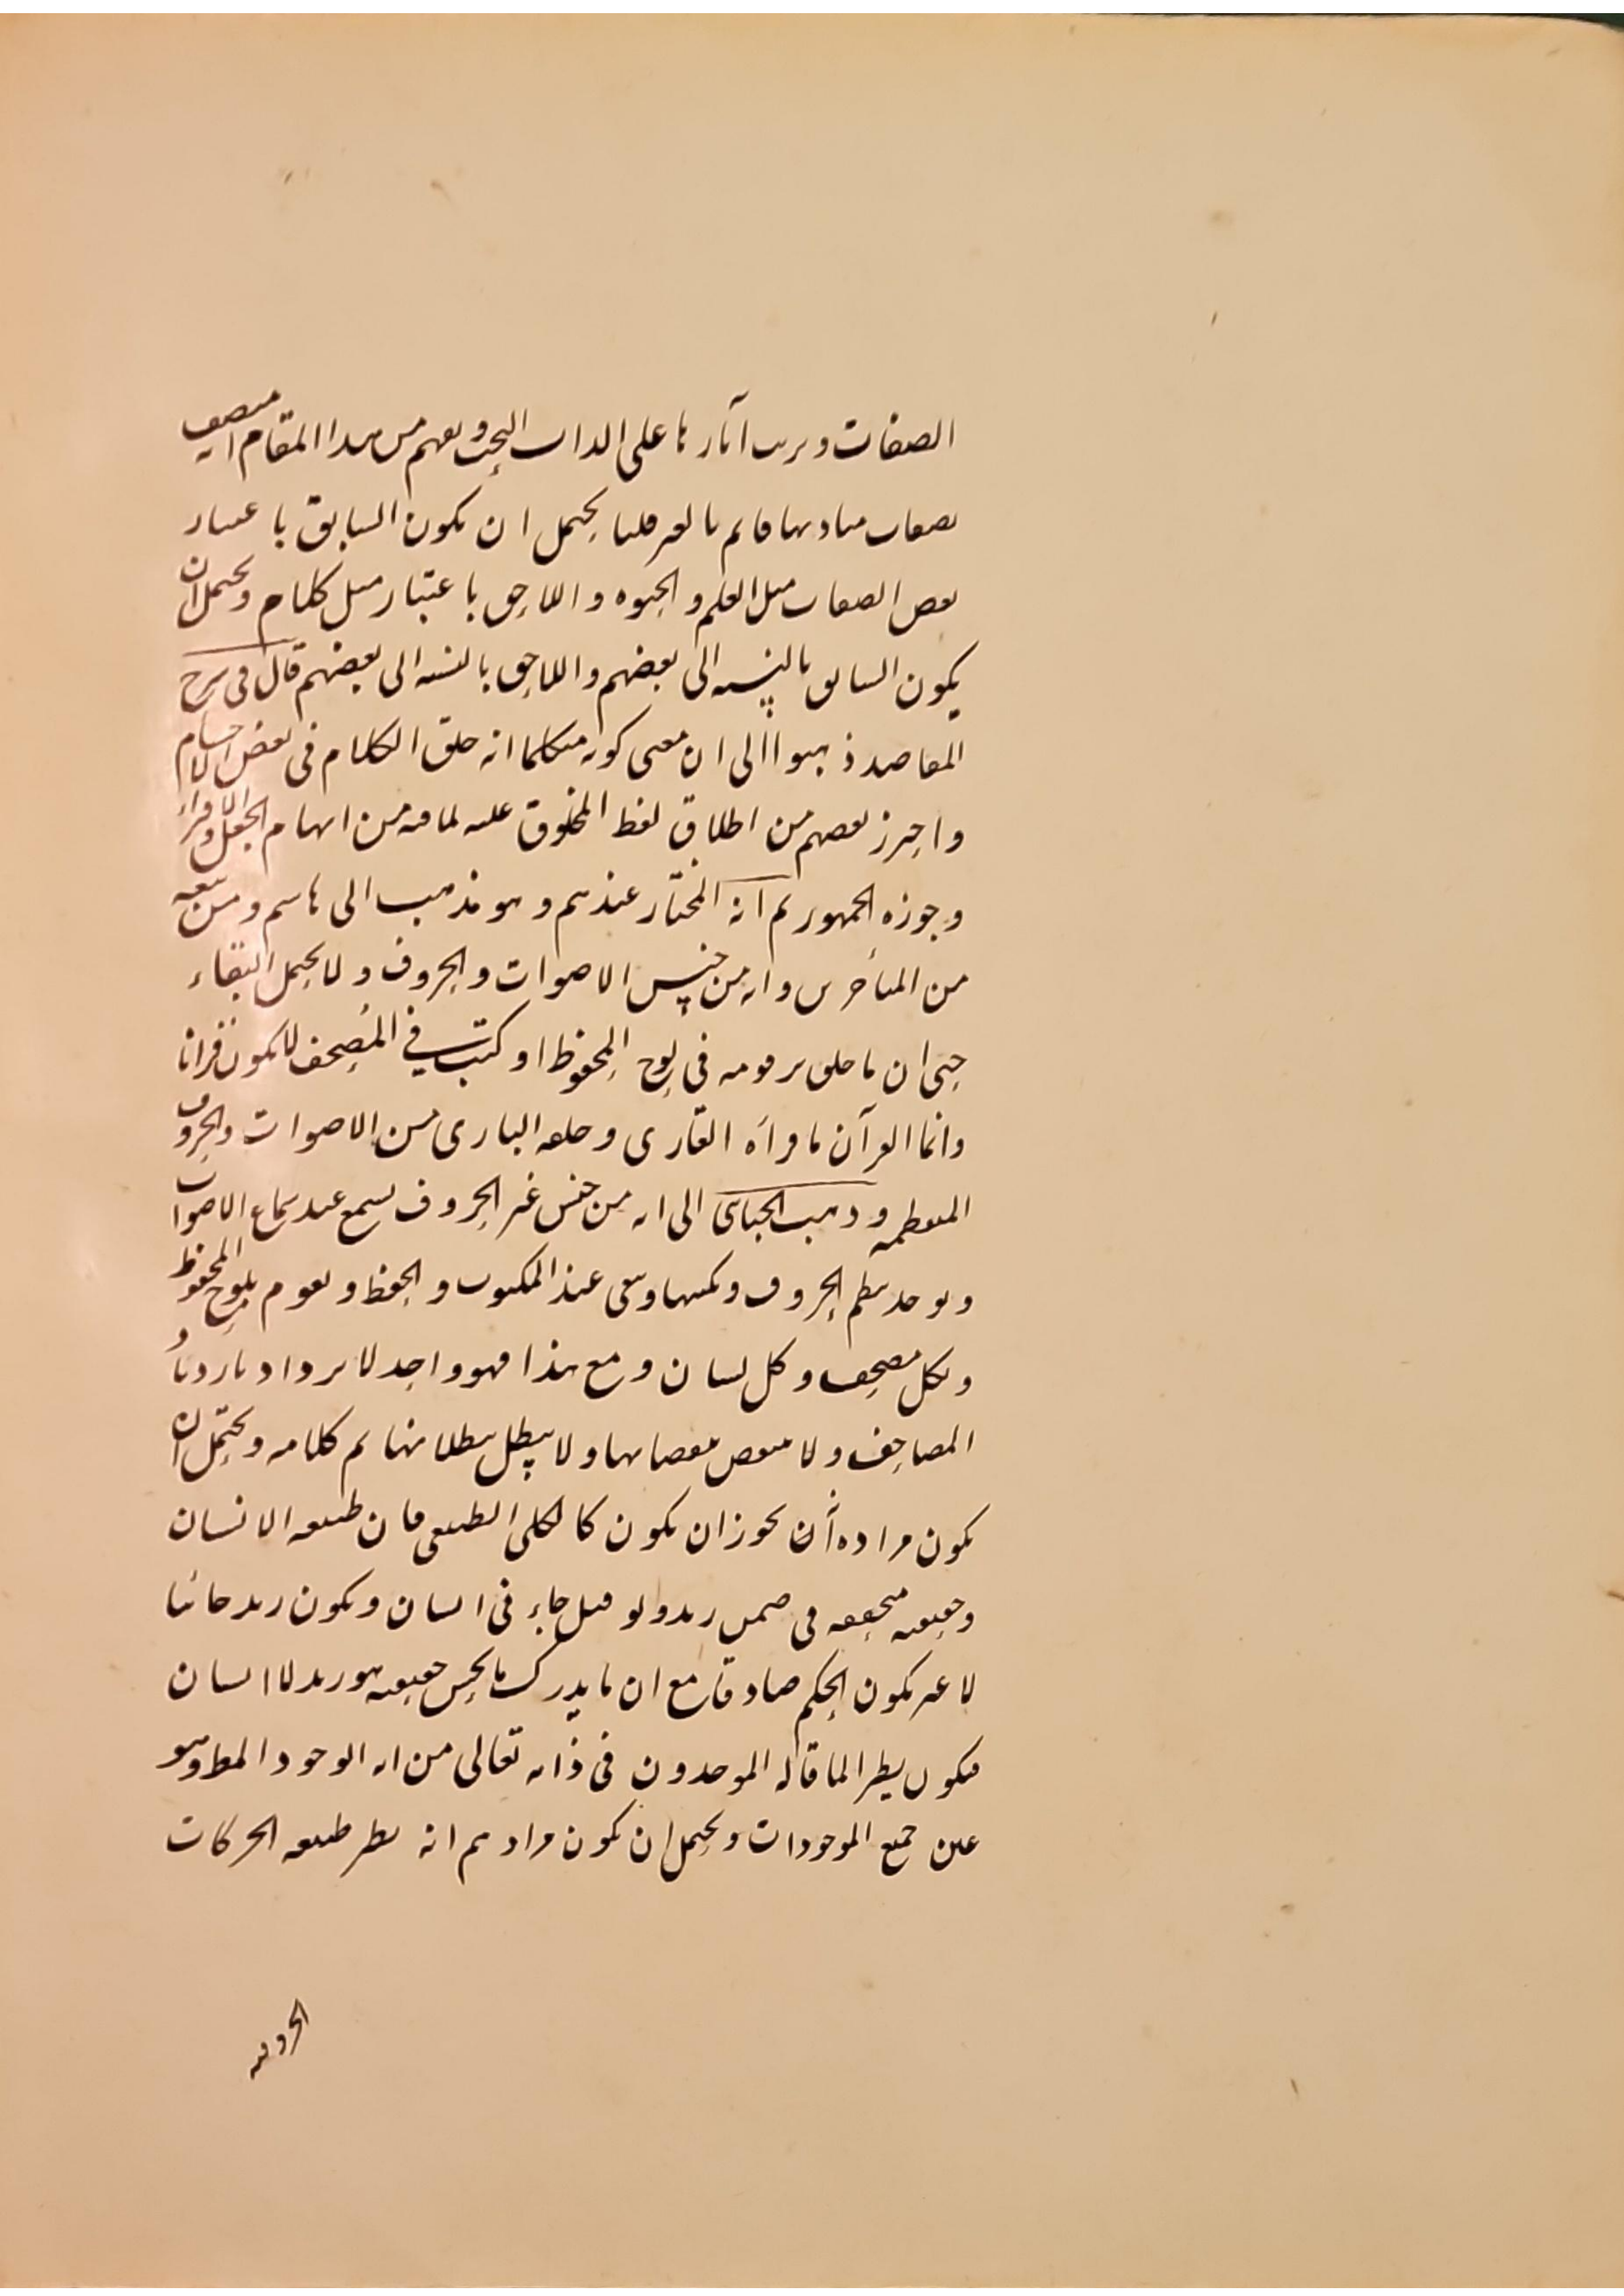 الصفات وترتب آثارها على الذات البحت ويفهم من هذا المقام انه متصف
بصفات مباديها قائم بالغير قلنا يحتمل ان يكون السابق باعتبار
بعض الصفات مثل العلم والحيوه واللاحق باعتبار مثل كلام ويحتمل ان
يكون السابق بالنسبه الى بعضهم واللاحق بالنسبه الى بعضهم قال في شرح
المقاصد ذهبوا الى ان معنى كونه متكلما انه خلق الكلام في بعض الاجسام
واحترز بعضهم من اطلاق لفظ المخلوق عليه لما فيه من ايهام الجعل والافتراء
وجوزه الجمهور ثم انه المختار عندهم وهو مذهب ابى هاشم ومن تبعه
من المتأخرين وانه من جنس الاصوات والحروف ولا يحتمل البقاء
حتى ان ما خلق برقومه في لوح المحفوظ او كتبت في المصحف لا يكون قرانا
وانما القرآن ما قرأه القارى وخلقه البارى من الاصوات والحروف
المنقطمه وذهب الجبائى الى انه من جنس غير الحروف يسمع عند سماع الاصوات
ويوجد بنظم الحروف وبكتبها ويبقى عند المكتوب والحفظ ويقوم بلوح المحفوظ
وبكل مصحف وكل لسان ومع هذا فهو واحد لا يزداد بازدياد
المصاحف ولا ينقص بنقصانها ولا يبطل ببطلانها ثم كلامه ويحتمل ان
يكون مراده أن يجوز ان يكون كالكلى الطبيعى فان طبيعه الانسان
وحقيقته متحققه في ضمن زيد ولو قيل جاء في انسان ويكون زيد جائيا
لا غير يكون الحكم صادقا مع ان ما يدرك بالحس حقيقه هو زيد لا انسان
فيكون نظير الما قاله الموحدون في ذاته تعالى من انه الوجود المط وهو
عين جميع الموجودات ويحتمل ان يكون مرادهم انه نظير طبيعه الحركات